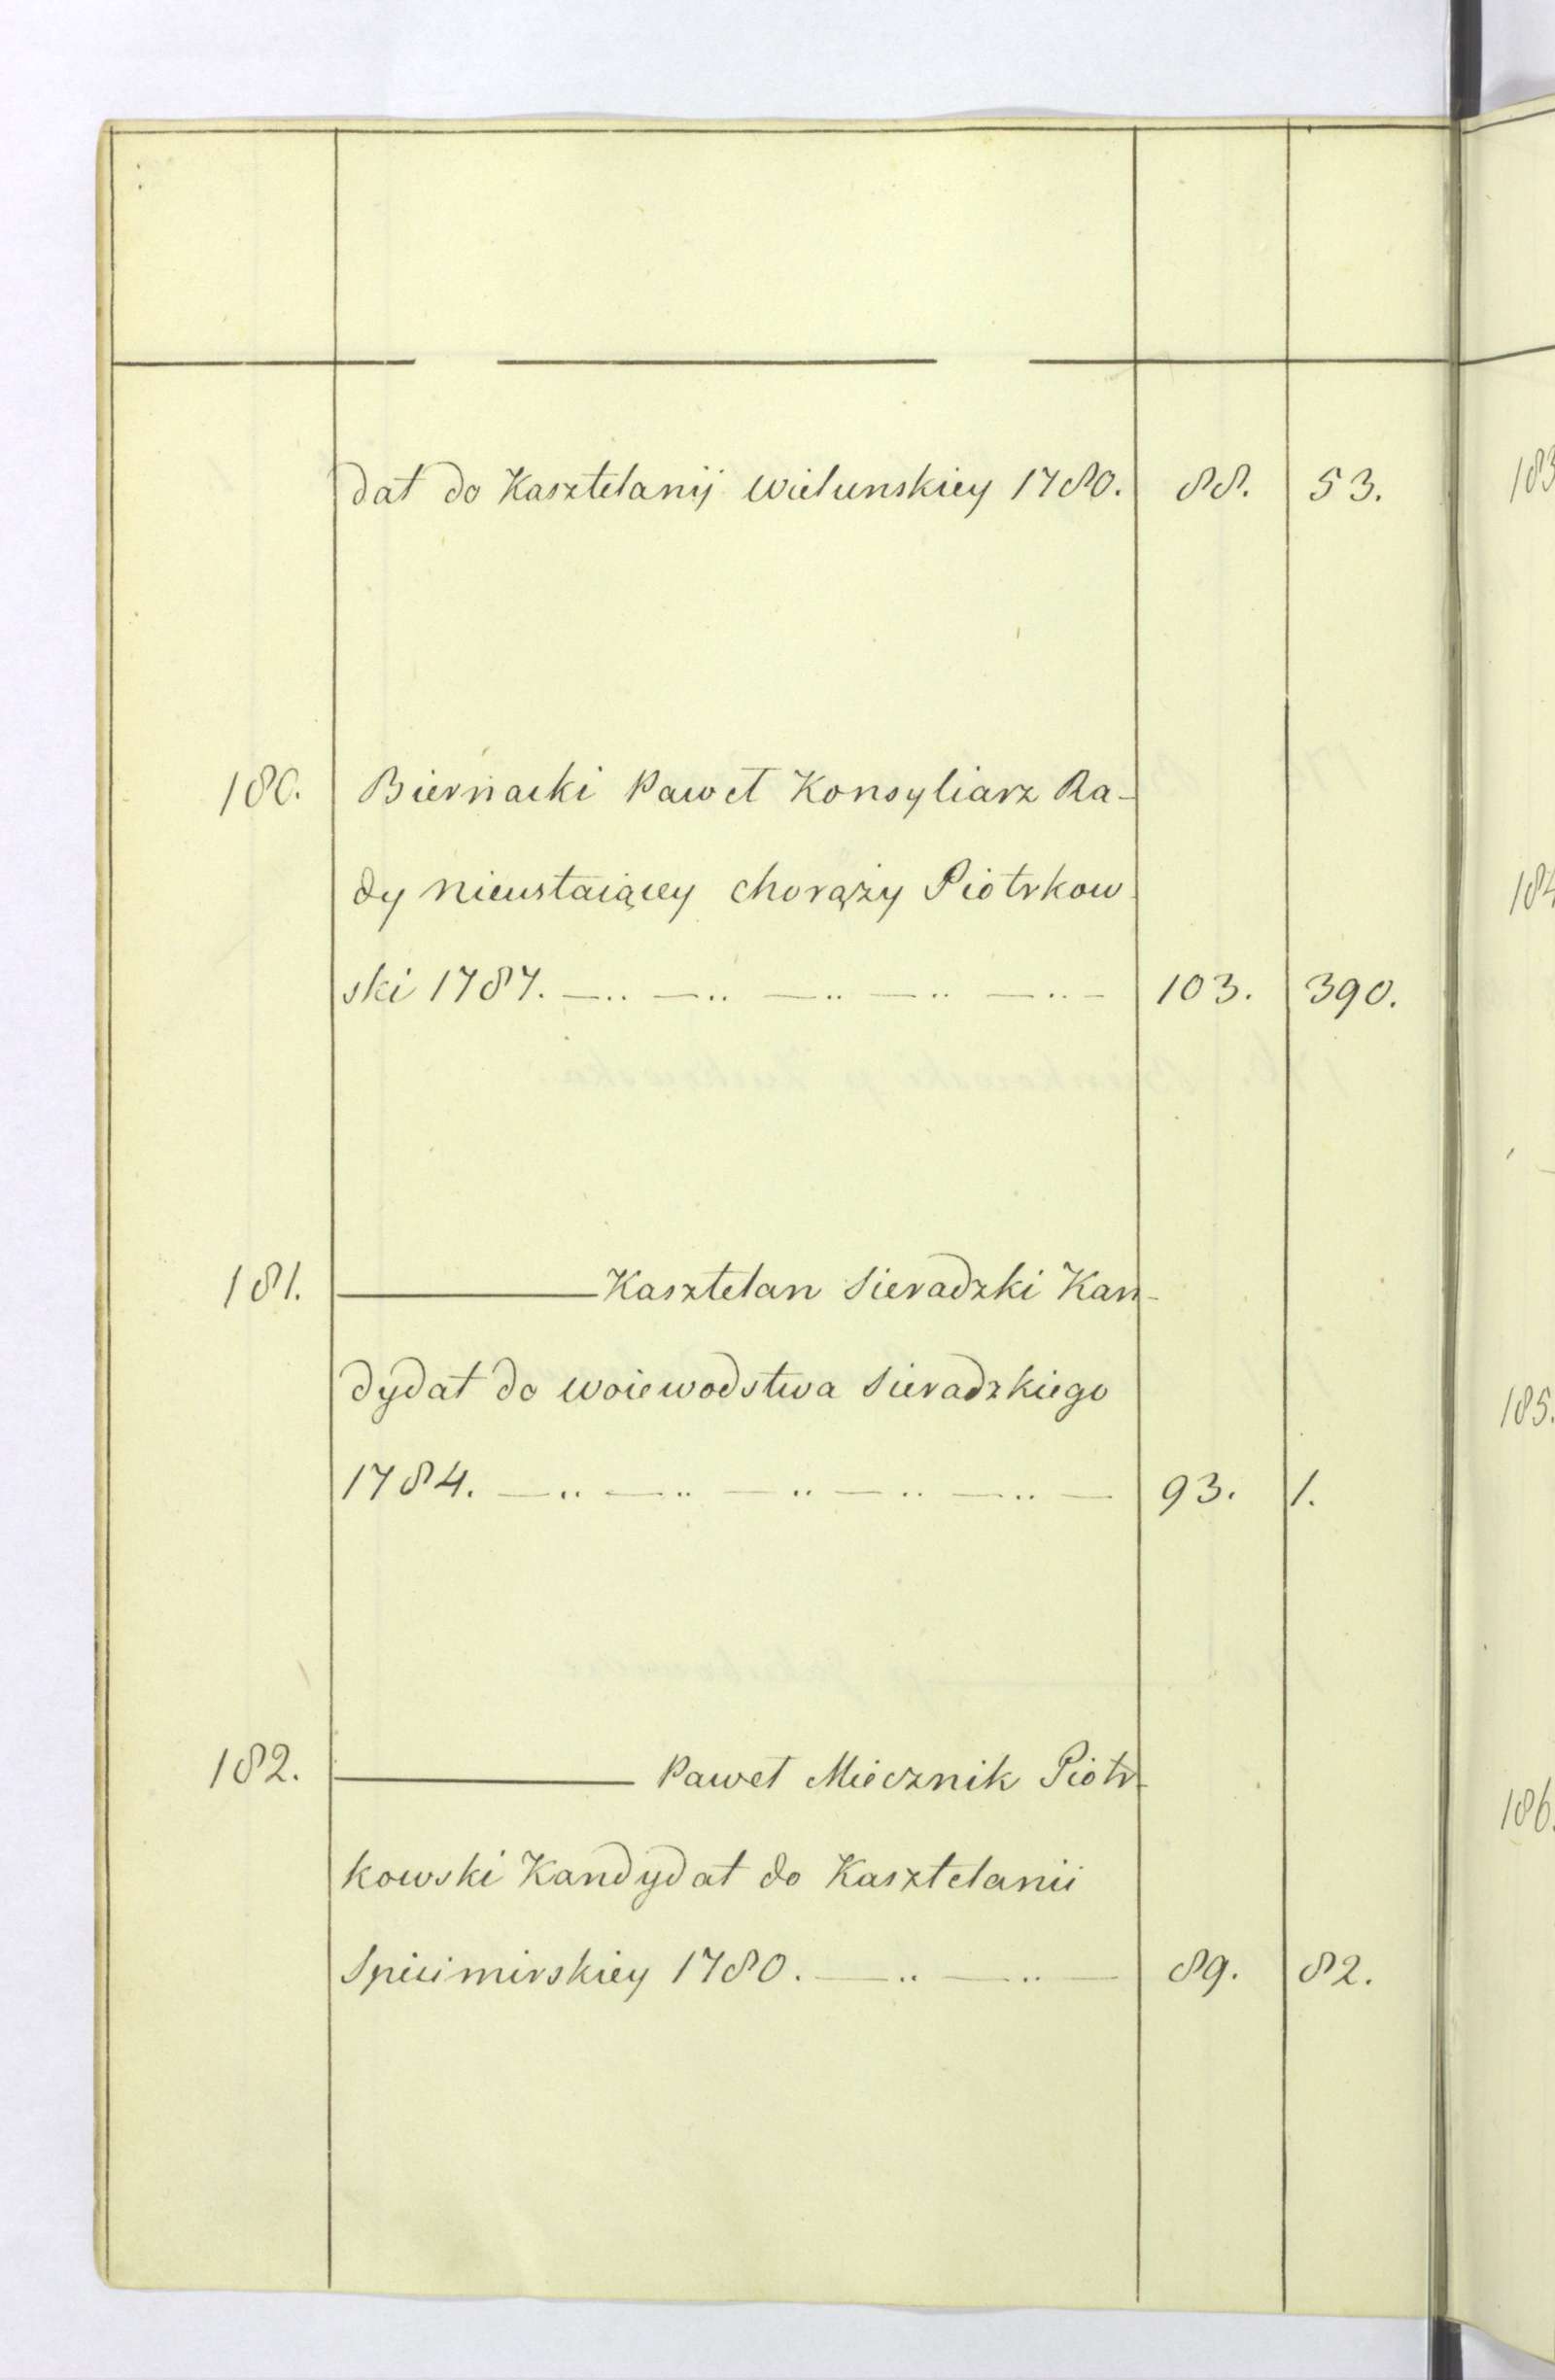 dat do Kasztelanij Wielunskiey 1780. 88. 53.
180. Biernacki Paweł Konsyliarz Ra-
dy nieustaiącey chorąży Piotrkow-
ski 1787. 103. 390.
181. ——— Kasztelan Sieradzki Kan-
dydat do Woiewodstwa Sieradzkiego
1784. 93. 1.
182. ——— Paweł Miecznik Piotr-
kowski Kandydat do Kasztelanii
Spicimirskiey 1780. 89. 82.
183
184
185.
186.